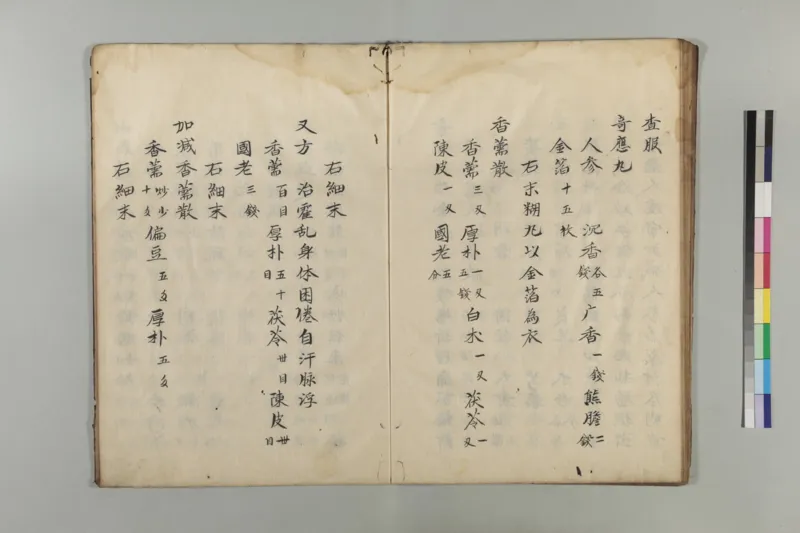 査服
奇應丸
人参 沉香各五錢 广香一錢 熊膽二錢
金箔十五枚
右末糊丸以金箔為衣
香薷散
香薷三又 厚朴一又五錢 白朮一又 茯苓一又
陳皮一又 國老五分
右細末
又方 治霍乱身体困倦自汗脉浮
香薷百目 厚朴五十目 茯苓丗目 陳皮丗目
國老三錢
右細末
加減香薷散
香薷炒少十爻 偏豆五爻 厚朴五爻
右細末